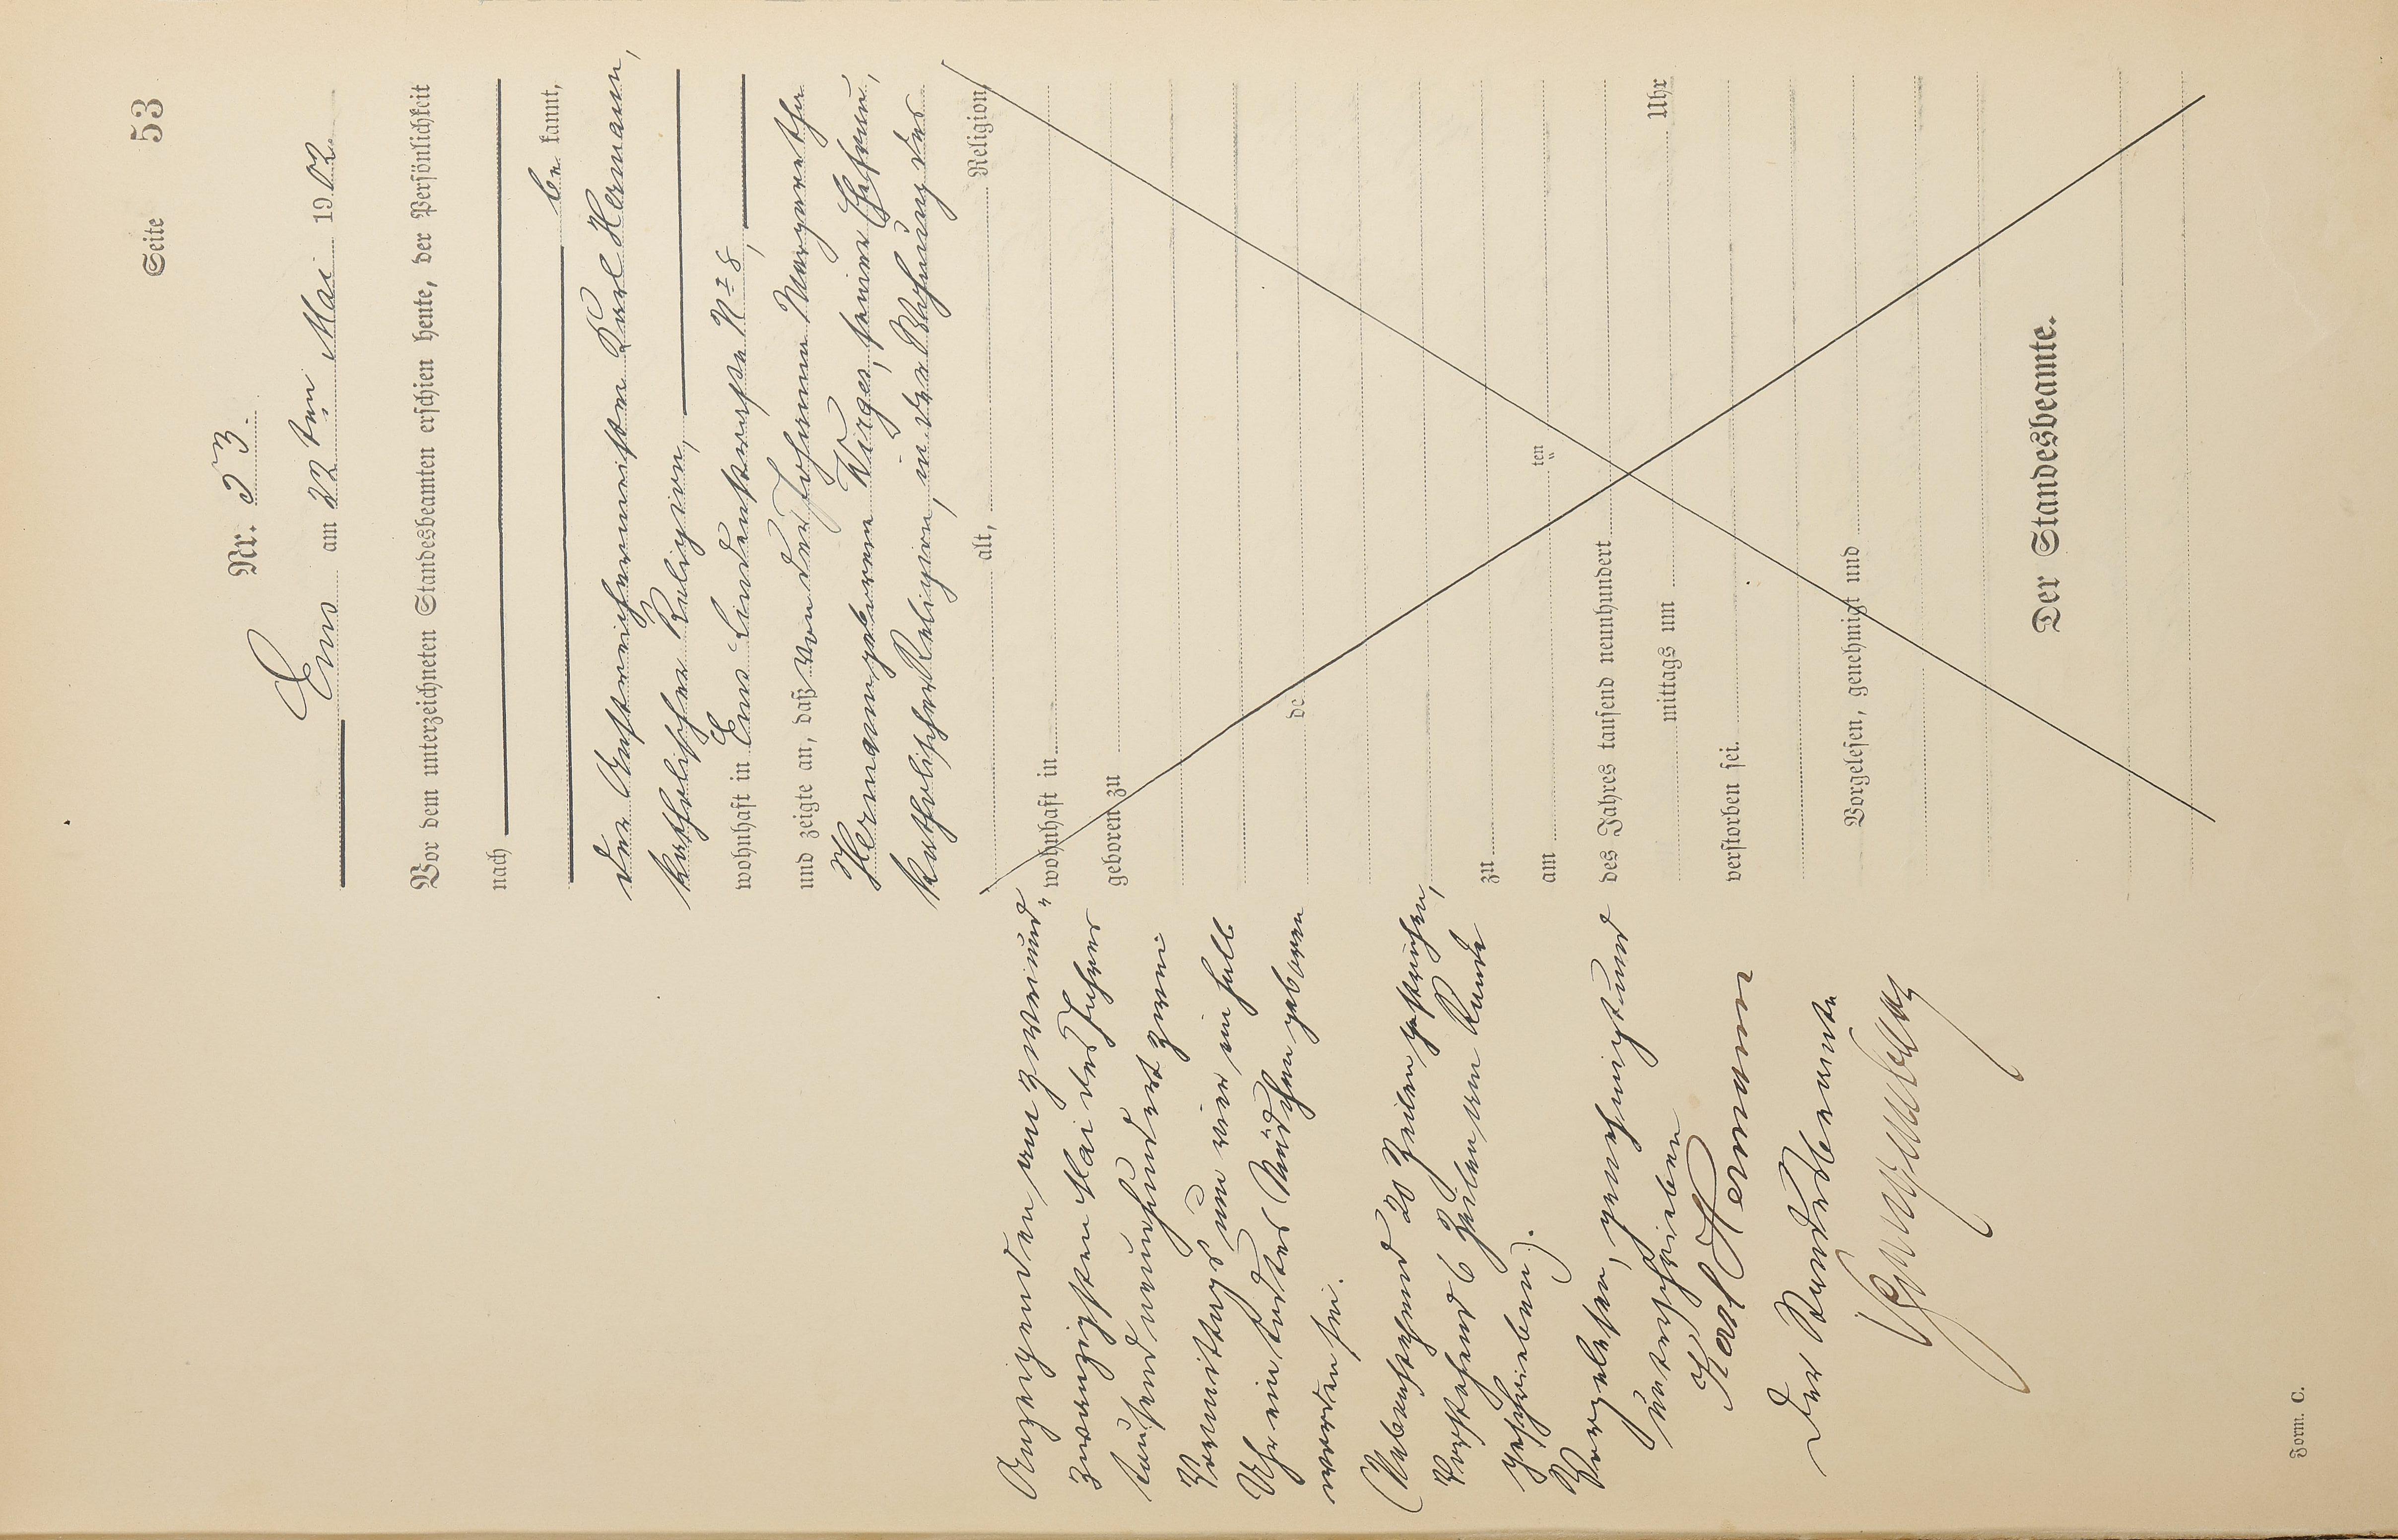 Seite 53
Nr. 53.
Ems am 22 ten Mai 1902.
Vor dem unterzeichneten Standesbeamten erschien heute, der Persönlichkeit
nach
be kannt,
der Anstreichermeister Karl Hermann,
katholischer Religion,
wohnhaft in Ems Lindenstraße No 8,
und zeigte an, daß von der Johanna Margaretha
Hermann geborene Wirges, seiner Ehefrau,
katholischer Religion, in der Wohnung des
alt, Religion,
wohnhaft in
geboren zu
de
zu
am ten
des Jahres tausend neunhundert
mittags um Uhr
verstorben sei.
Vorgelesen, genehmigt und
Der Standesbeamte.
Anzeigenden am zweiund-
zwanzigsten Mai des Jahres
tausend neunhundert zwei
Vormittags um vier ein halb
Uhr ein todtes Mädchen geboren
worden sei.
(Nebenstehend 20 Zeilen gestrichen,
Vorstehend 6 Zeilen am Rande
geschrieben).
Vorgelesen, genehmigt und
unterschrieben
Karl Hermann
Der Standesbeamte
Form. C.